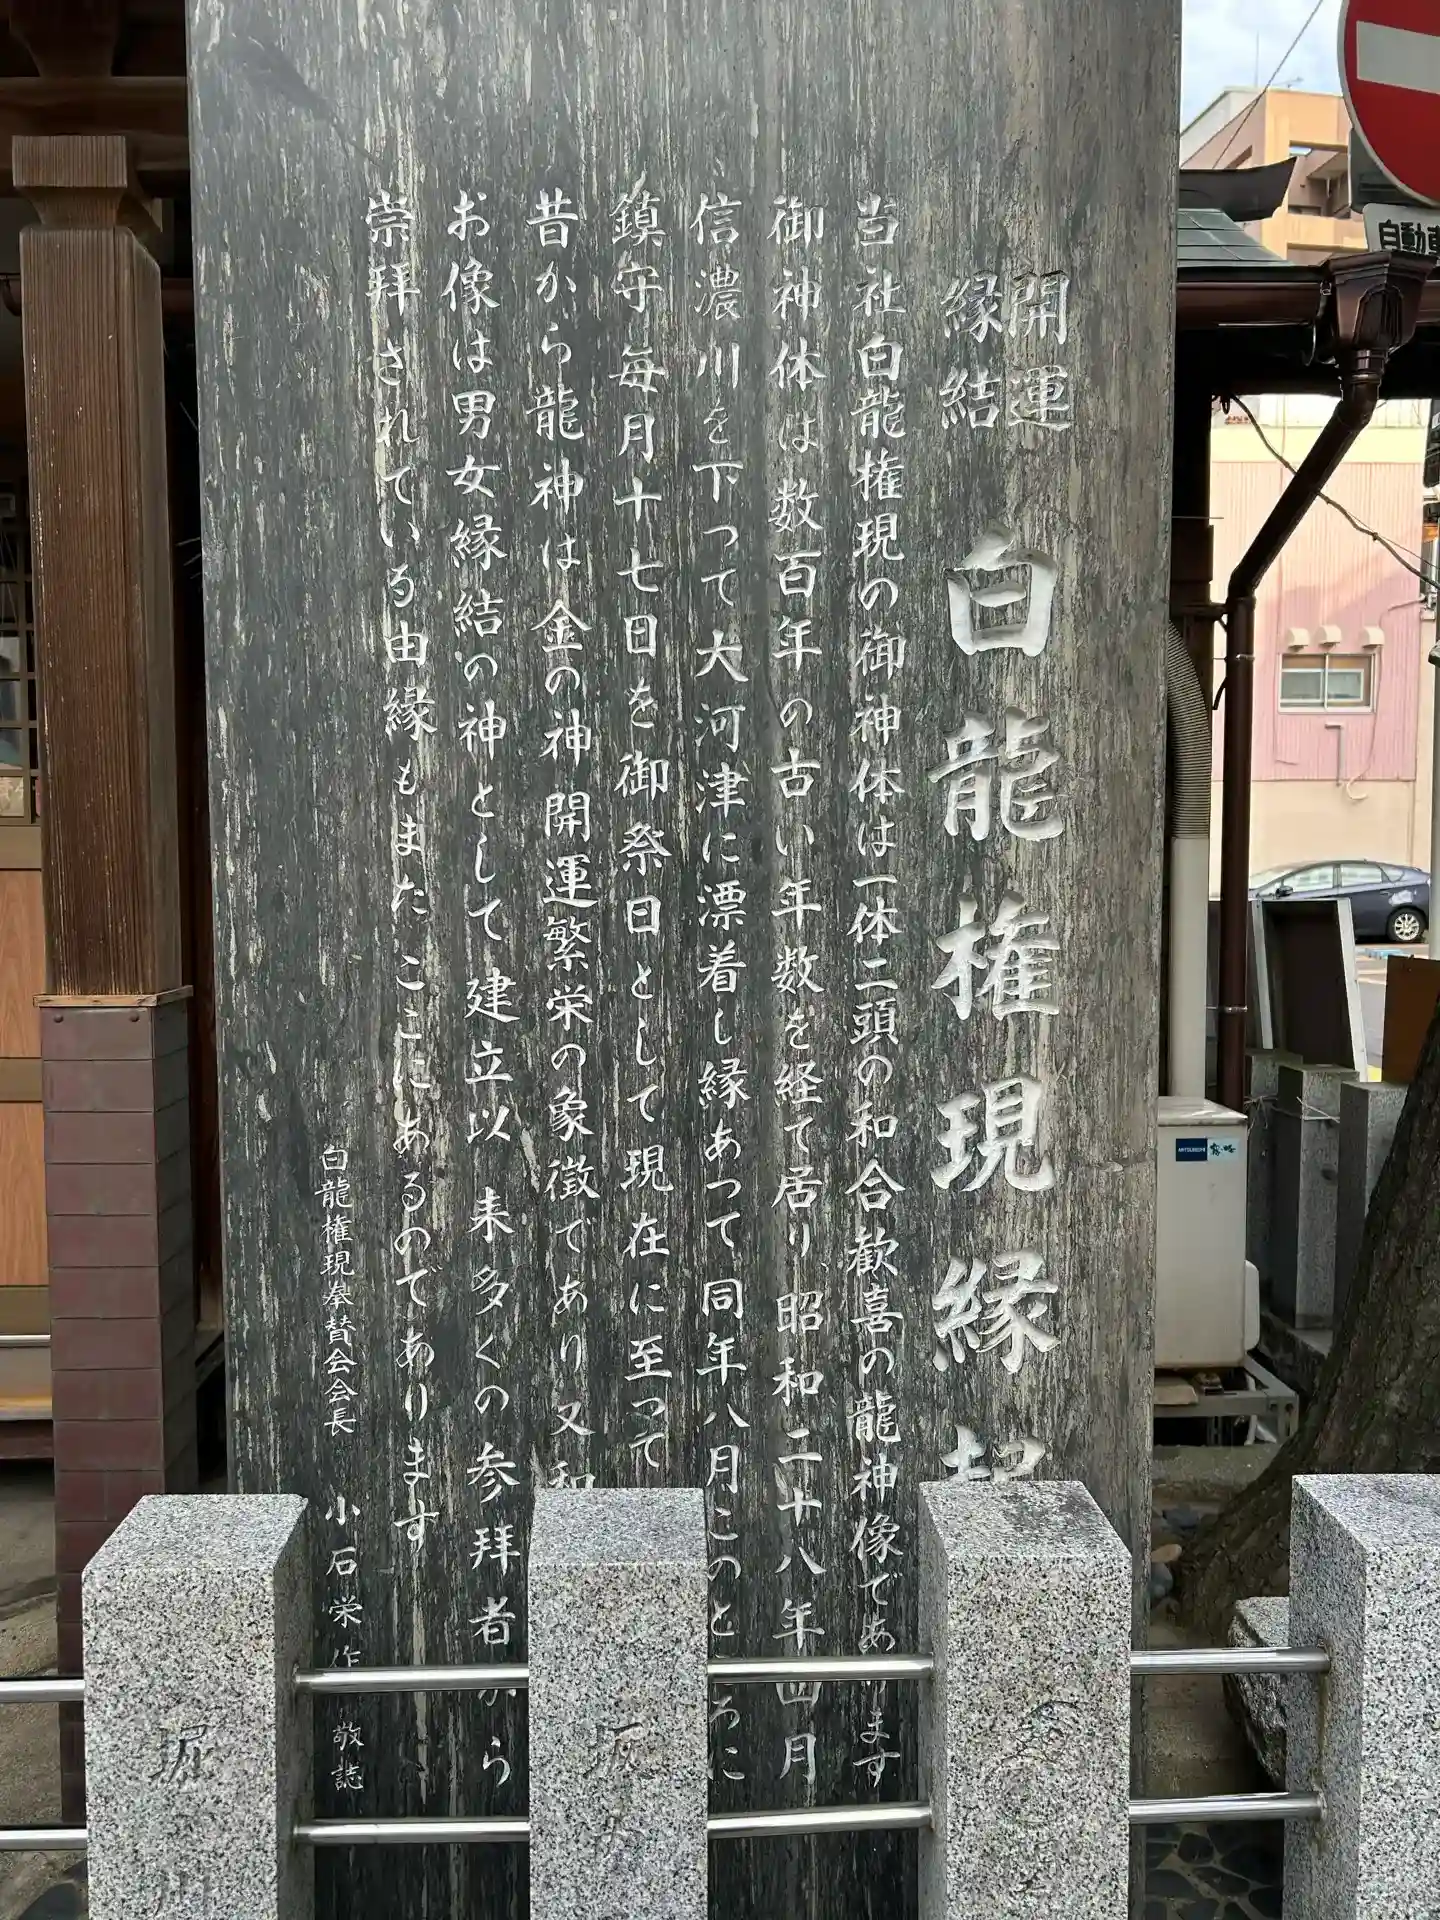 開運
縁結
白龍権現縁起
当社白龍権現の御神体は一体二頭の和合歓喜の龍神像であります
御神体は数百年の古い年数を経て居り、昭和二十八年四月
信濃川を下つて大河津に漂着し縁あつて同年八月このところに
鎮守毎月十七日を御祭日として現在に至つて
昔から龍神は金の神開運繁栄の象徴であり又和
お像は男女縁結の神として建立以来多くの参拝者から
崇拝されている由縁もまたここにあるのであります
白龍権現奉賛会会長 小石栄作 敬誌
自動車
MITSUBISHI